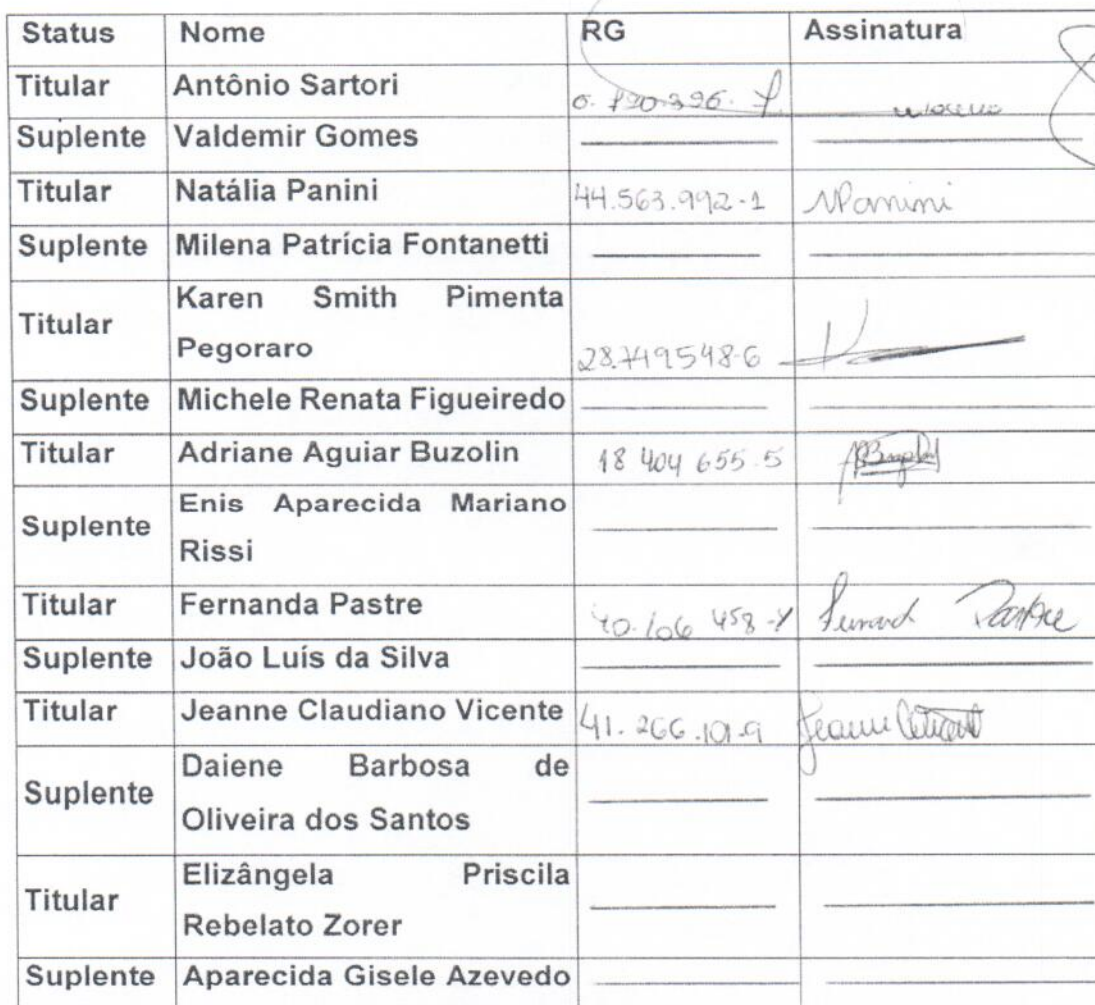 Status Nome RG Assinatura
Titular Antônio Sartori
Suplente Valdemir Gomes
Titular Natália Panini 44.563.992-1 NPanini
Suplente Milena Patrícia Fontanetti
Titular Karen Smith Pimenta
Pegoraro 28.749548-6
Suplente Michele Renata Figueiredo
Titular Adriane Aguiar Buzolin 18 404 655-5
Suplente Enis Aparecida Mariano
Rissi
Titular Fernanda Pastre Pastre
Suplente João Luís da Silva
Titular Jeanne Claudiano Vicente 41.266.101-9 Jeanne
Suplente Daiene Barbosa de
Oliveira dos Santos
Titular Elizângela Priscila
Rebelato Zorer
Suplente Aparecida Gisele Azevedo